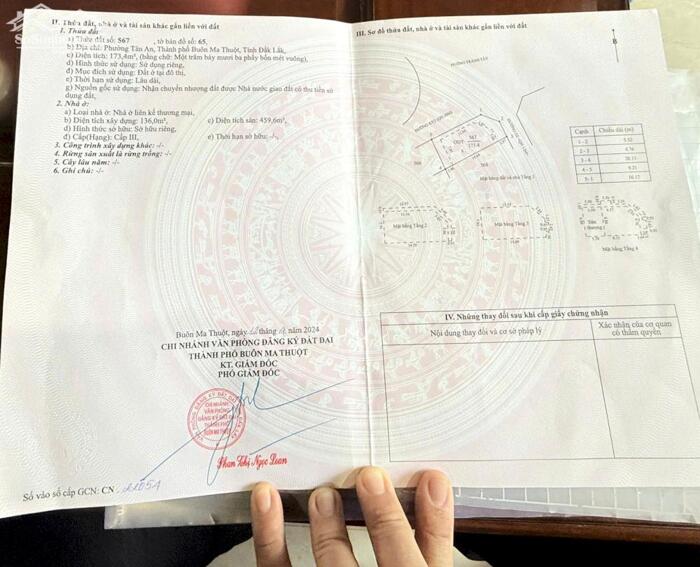 II. Thửa đất, nhà ở và tài sản khác gắn liền với đất
1. Thửa đất:
a) Thửa đất số: 567 , tờ bản đồ số: 65,
b) Địa chỉ: Phường Tân An, Thành phố Buôn Ma Thuột, Tỉnh Đắk Lắk,
c) Diện tích: 173,4m², (bằng chữ: Một trăm bảy mươi ba phẩy bốn mét vuông),
d) Hình thức sử dụng: Sử dụng riêng,
đ) Mục đích sử dụng: Đất ở tại đô thị,
e) Thời hạn sử dụng: Lâu dài,
g) Nguồn gốc sử dụng: Nhận chuyển nhượng đất được Nhà nước giao đất có thu tiền sử
dụng đất,
2. Nhà ở:
a) Loại nhà ở: Nhà ở liên kế thương mại,
b) Diện tích xây dựng: 136,0m², c) Diện tích sàn: 459,6m²,
d) Hình thức sở hữu: Sở hữu riêng,
đ) Cấp(Hạng): Cấp III, e) Thời hạn sở hữu: -/-
3. Công trình xây dựng khác: -/-
4. Rừng sản xuất là rừng trồng: -/-
5. Cây lâu năm: -/-
6. Ghi chú: -/-
Buôn Ma Thuột, ngày tháng năm 2024
CHI NHÁNH VĂN PHÒNG ĐĂNG KÝ ĐẤT ĐAI
THÀNH PHỐ BUÔN MA THUỘT
KT. GIÁM ĐỐC
PHÓ GIÁM ĐỐC
CHI NHÁNH
VĂN PHÒNG
ĐĂNG KÝ ĐẤT ĐAI
THÀNH PHỐ
BUÔN MA THUỘT
Phan Thị Ngọc Loan
Số vào sổ cấp GCN: CN
III. Sơ đồ thửa đất, nhà ở và tài sản khác gắn liền với đất
B
567
173.4
Mặt bằng đất và nhà Tầng 1
Cạnh Chiều dài (m)
1 - 2
2 - 3
3 - 4
4 - 5 9.21
5 - 1
Mặt bằng Tầng 2
Mặt bằng Tầng 3
Mặt bằng Tầng 4
IV. Những thay đổi sau khi cấp giấy chứng nhận
Nội dung thay đổi và cơ sở pháp lý
Xác nhận của cơ quan
có thẩm quyền